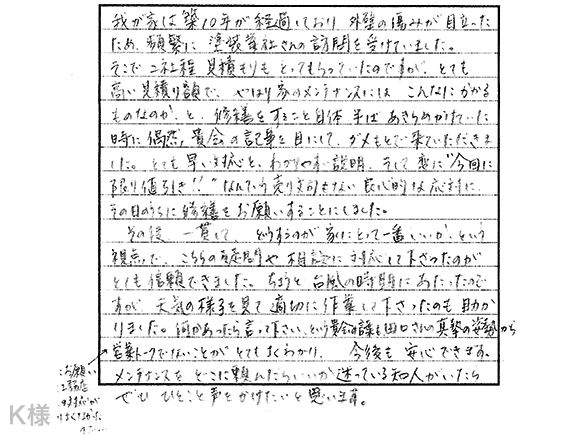 我が家は築10年が経過しており、外壁の傷みが目立った
ため、頻繁に塗装業社さんの訪問を受けていました。
そこで二社程 見積もりも とってもらっていたのですが、とても
高い見積り額で、やはり家のメンテナンスには こんなにかかる
ものなのか、と、修繕をすること自体 半ば あきらめかけていた
時に偶然、貴会の記事を目にして、ダメもとで来ていただきま
した。とても早い対応と、わかりやすい説明、そして悪に"今回に
限り値引き!!"なんていう売り文句もない良心的な応対に、
その日のうちに修繕をお願いすることにしました。
その後、一貫して、どうするのが家にとって一番いいか、という
視点で、こちらの質問や相談に対応して下さったのが
とても信頼できました。ちょうど台風の時期にあたったので
すが、天気の様子を見て適切に作業して下さったのも助か
りました。何かあったら言って下さい、という貴会の 田口さんの真摯の姿勢から
営業トークでないことがとてもよくわかり、今後も安心できます。
メンテナンスを どこに頼んだらいいか迷っている知人がいたら
ぜひ ひとこと声をかけたいと思います。
お願い
工務店
K様